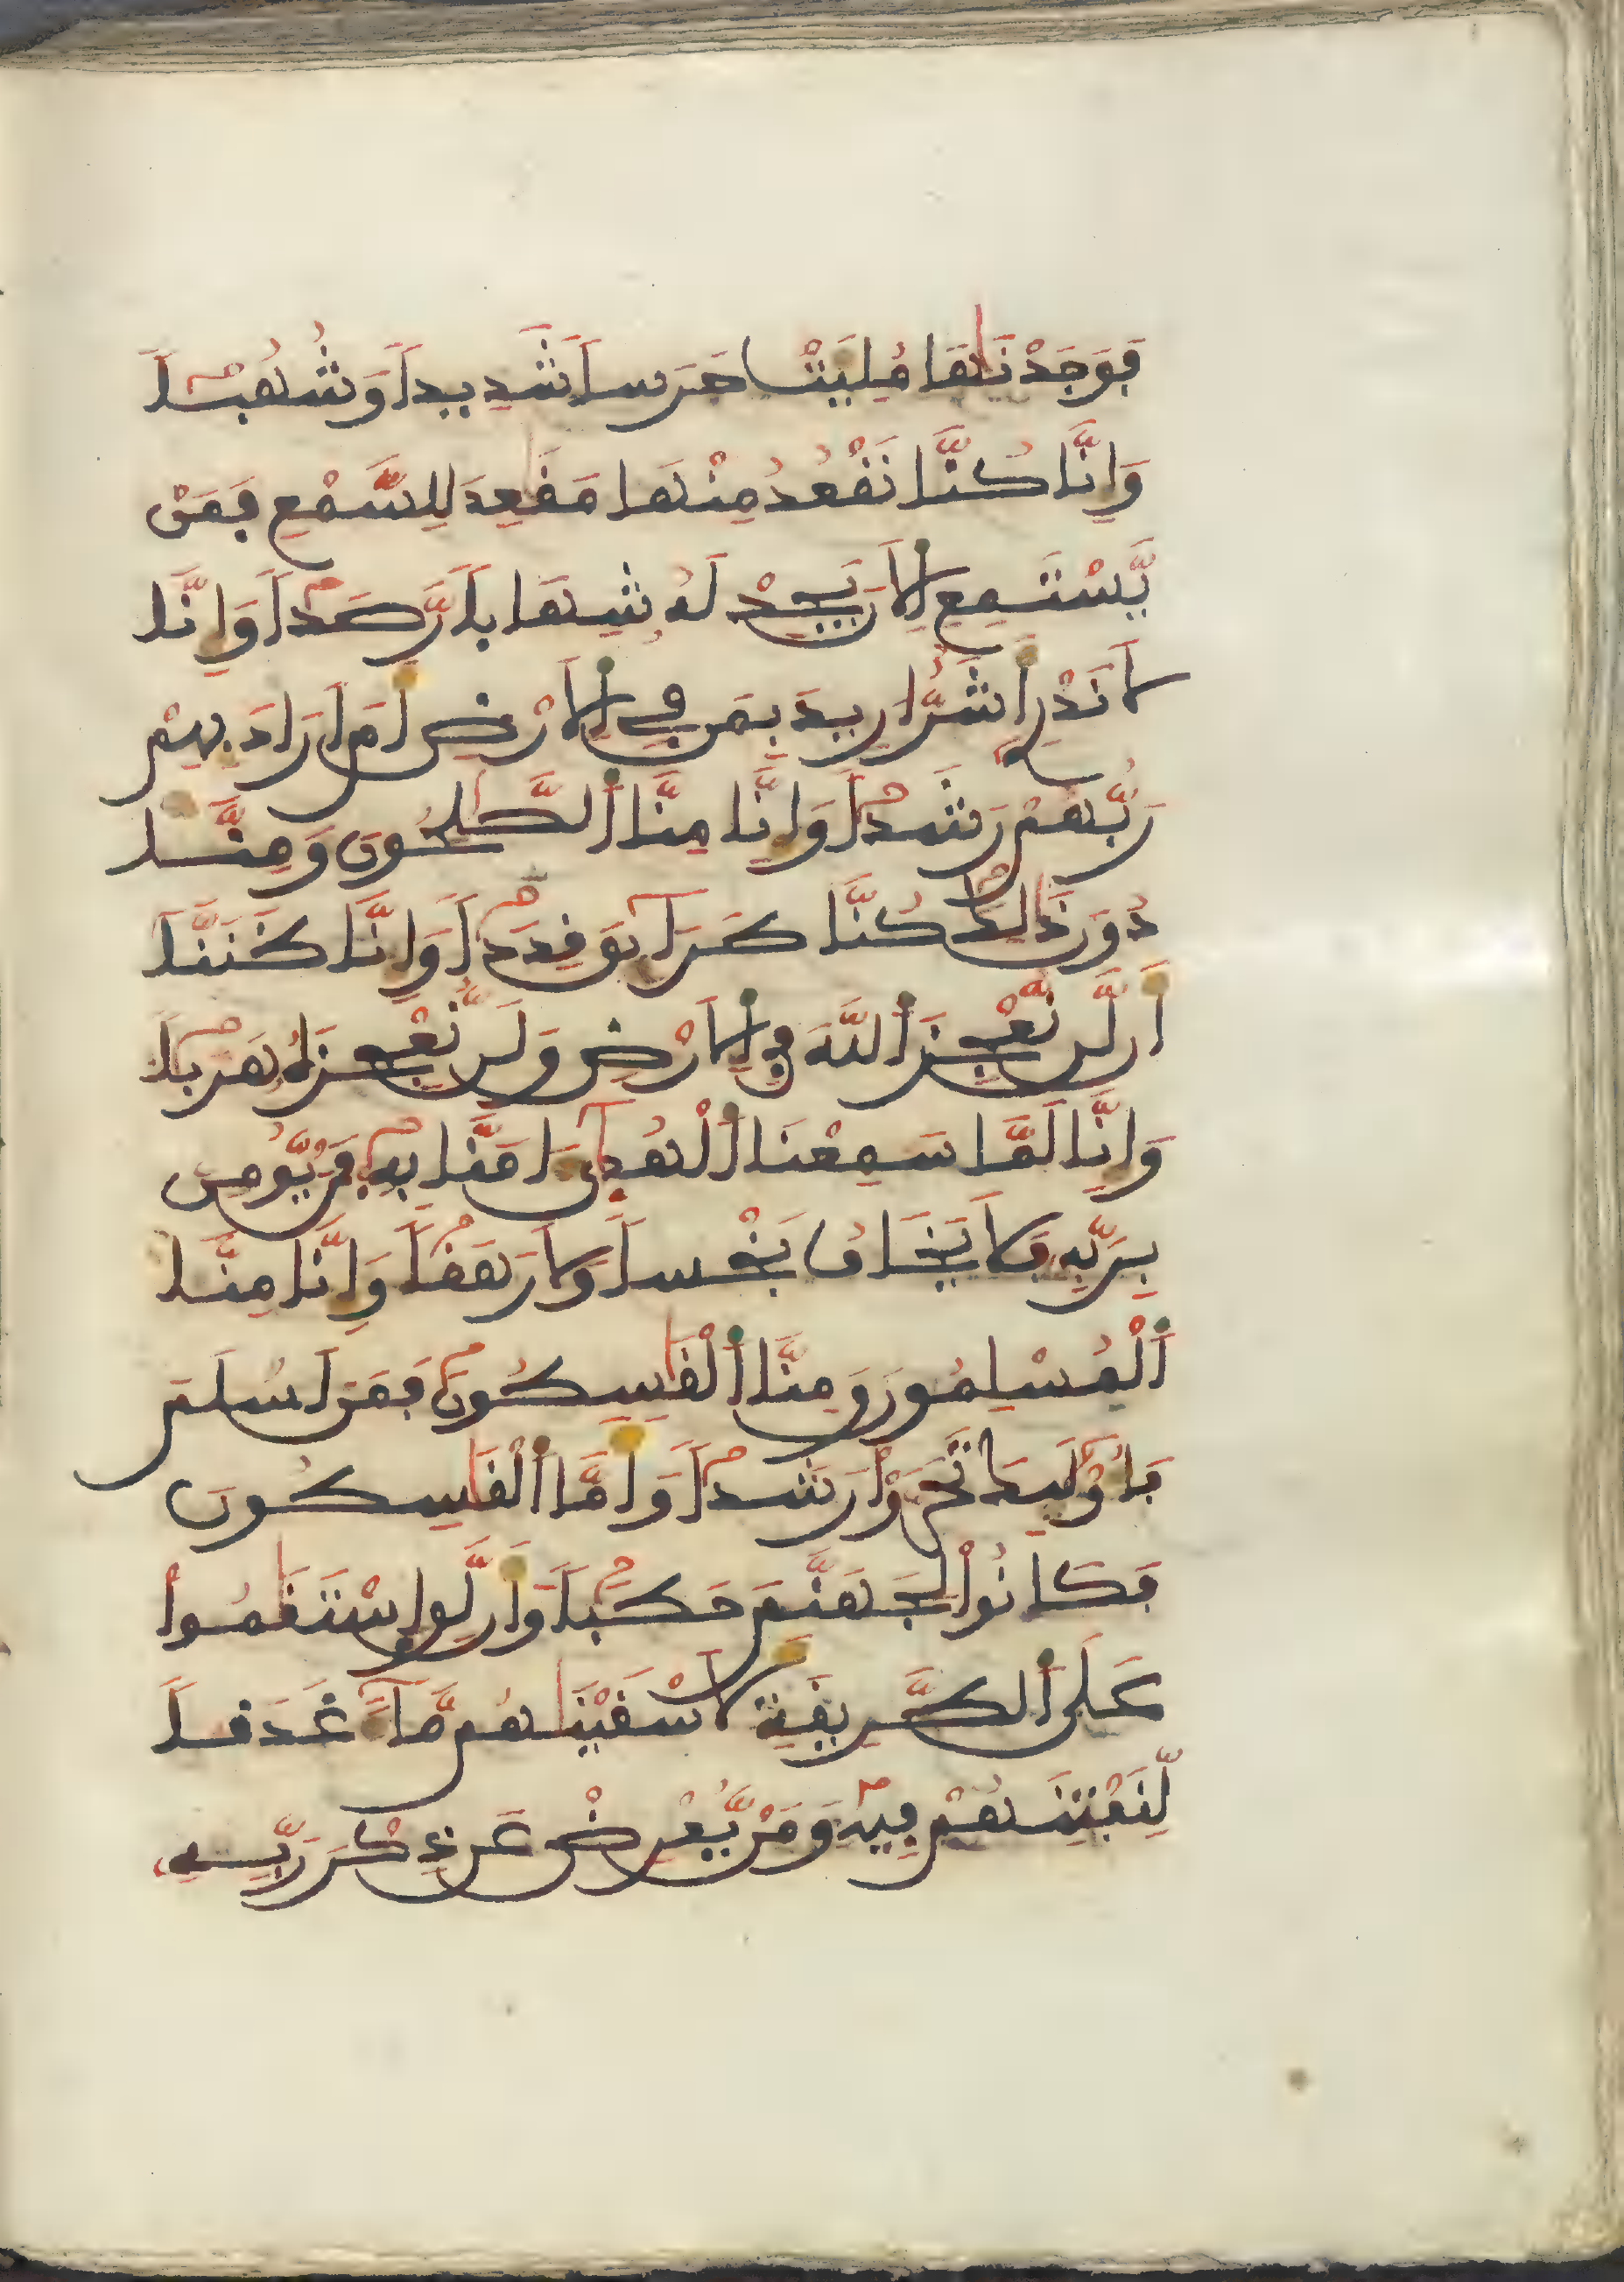 فَوَجَدْنَٰهَا مُلِيَتْ حَرَساً شَدِيداً وَشُهُباً
وَإِنَّا كُنَّا نَقْعُدُ مِنْهَا مَقَٰعِدَ لِلسَّمْعِ فَمَنْ
يَّسْتَمِعِ اِ۬لَانَ يَجِدْ لَهُۥ شِهَاباً رَّصَداً وَإِنَّا
لَا نَدْرِے أَشَرٌّ ا۟رِيدَ بِمَن فِے اِ۬لَارْضِ أَمَ اَرَادَ بِهِمْ
رَبُّهُمْ رَشَداً وَإِنَّا مِنَّا اَ۬لصَّٰلِحُونَ وَمِنَّا
دُونَ ذَٰلِكَ كُنَّا طَرَآئِقَ قِدَداً وَإِنَّا ظَنَنَّا
أَن لَّن نُّعْجِزَ اَ۬للَّهَ فِے اِ۬لَارْضِ وَلَن نُّعْجِزَهُۥ هَرَباً
وَإِنَّا لَمَّا سَمِعْنَا اَ۬لْهُدَىٰٓ ءَامَنَّا بِهِۦ فَمَنْ يُّومِن
بِرَبِّهِۦ فَلَا يَخَافُ بَخْساً وَلَا رَهَقاً وَإِنَّا مِنَّا
اَ۬لْمُسْلِمُونَ وَمِنَّا اَ۬لْقَٰسِطُونَ فَمَنَ اَسْلَمَ
فَأُوْلَٰٓئِكَ تَحَرَّوْاْ رَشَداً وَأَمَّا اَ۬لْقَٰسِطُونَ
فَكَانُواْ لِجَهَنَّمَ حَطَباً وَأَن لَّوِ اِ۪سْتَقَٰمُواْ
عَلَى اَ۬لطَّرِيقَةِ لَأَسْقَيْنَٰهُم مَّآءً غَدَقاً
لِّنَفْتِنَهُمْ فِيهِ وَمَنْ يُّعْرِضْ عَن ذِكْرِ رَبِّهِۦ